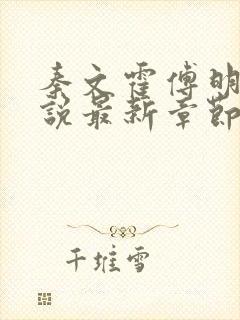 秦文霍傅明
說最新章節
千堆雪